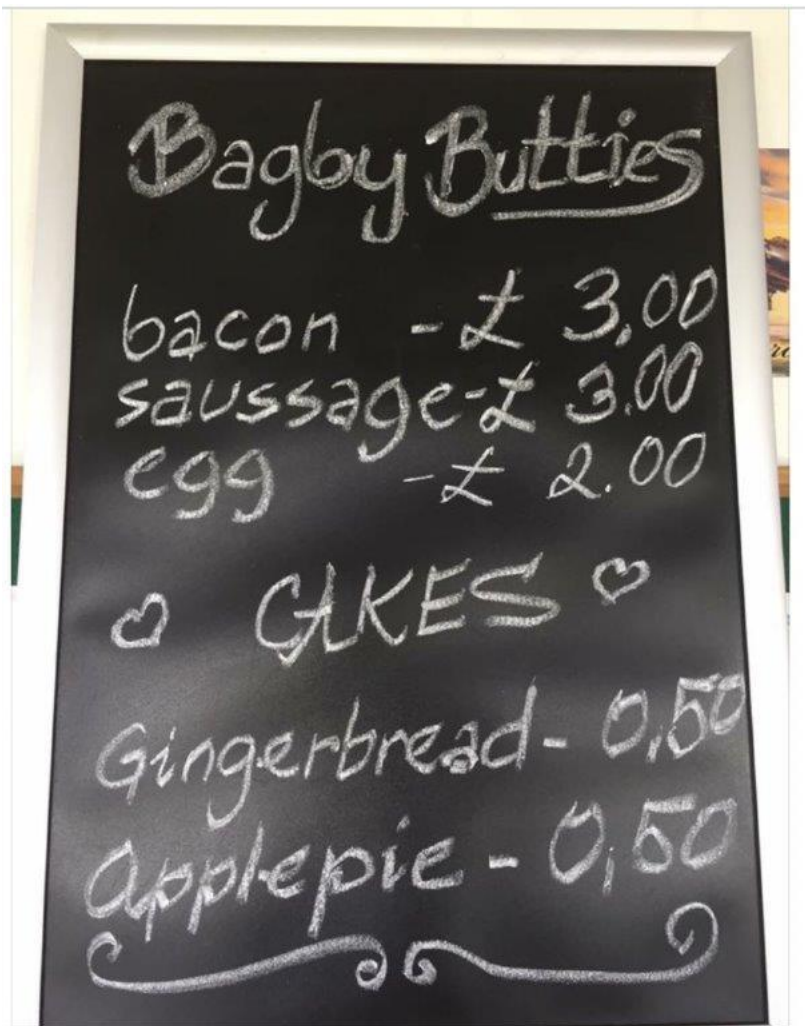 Bagby Butties
bacon - £ 3,00
saussage - £ 3.00
egg - £ 2.00
CAKES
Gingerbread - 0,50
Applepie - 0,50